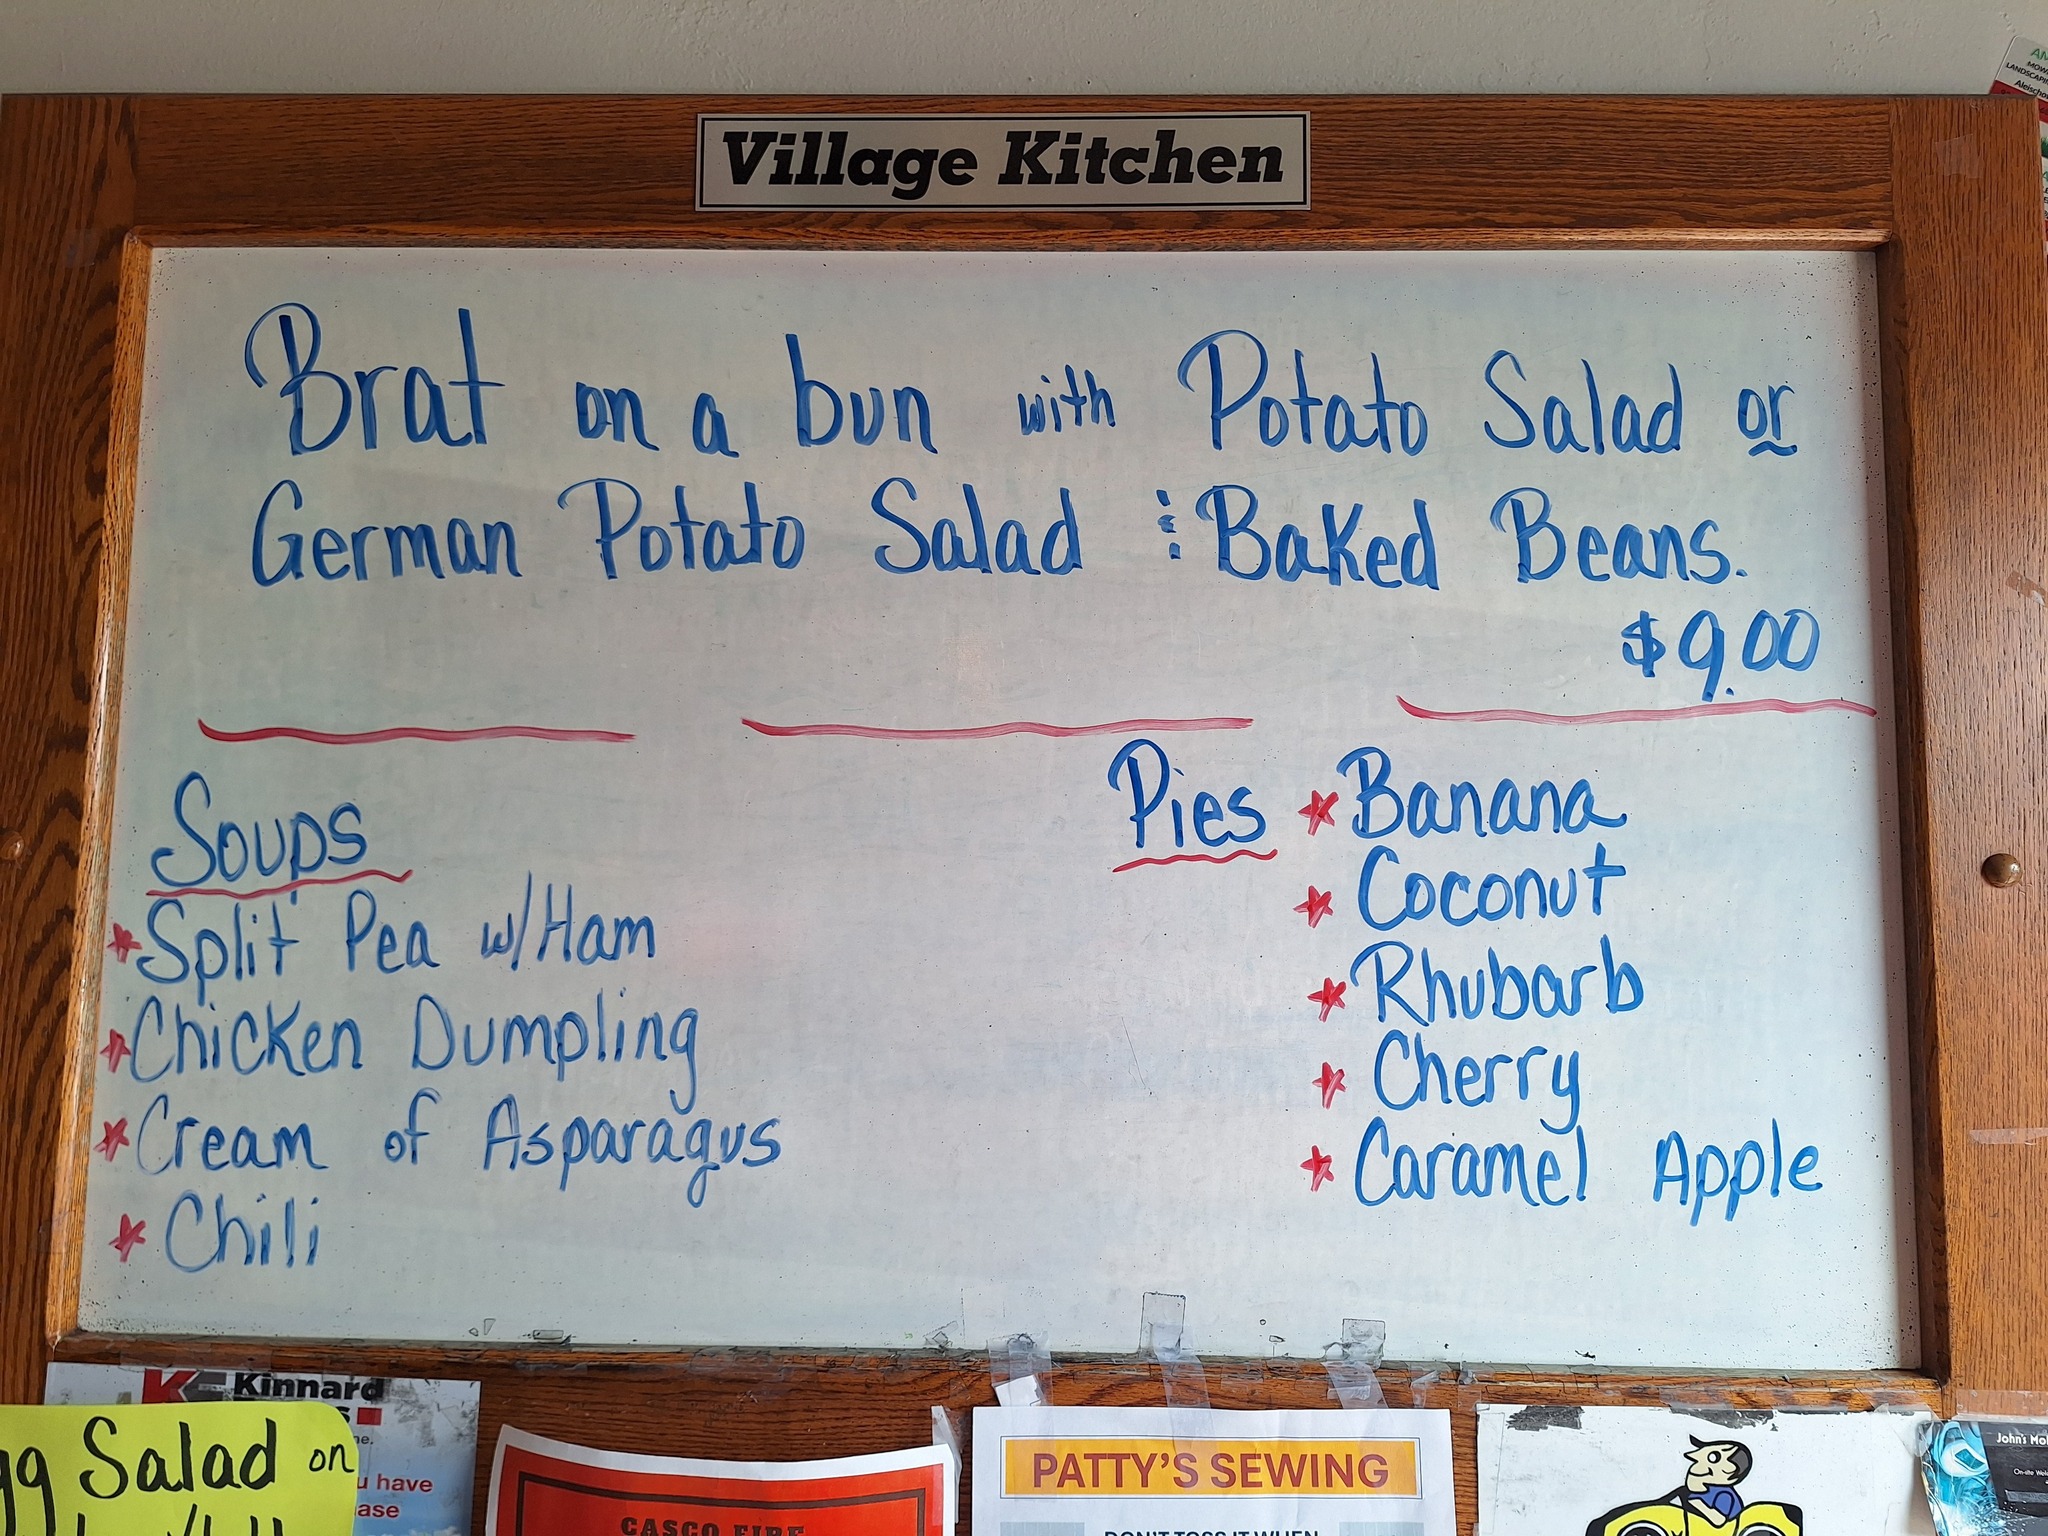 Village Kitchen
Brat on a bun with Potato Salad or
German Potato Salad & Baked Beans.
$9.00
Soups
Split Pea w/Ham
Chicken Dumpling
Cream of Asparagus
Chili
Pies
Banana
Coconut
Rhubarb
Cherry
Caramel Apple
Kinnard
Salad on
PATTY'S SEWING
CASCO FIRE
DON'T TOSS IT WHEN
u have
ase
John's